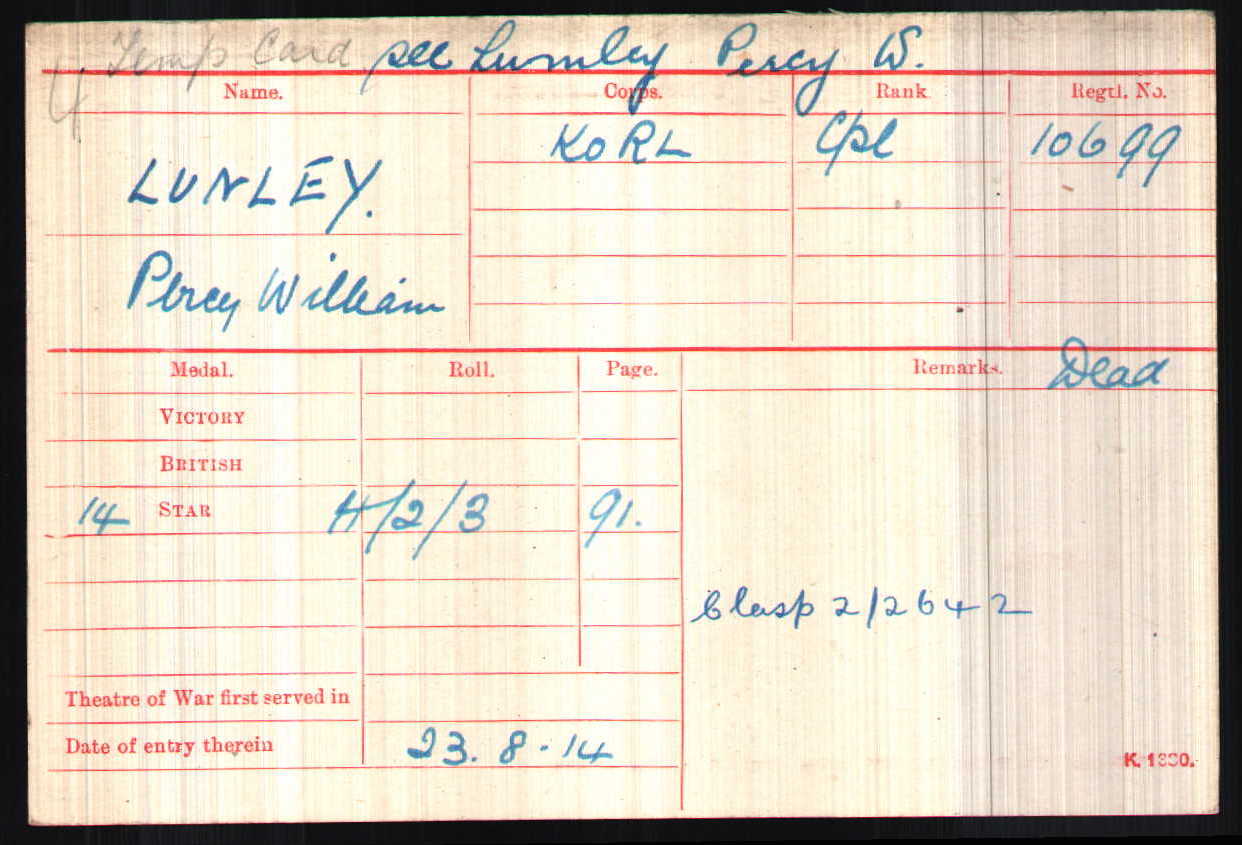 Temp Card see Lumley Percy W.
Name. Corps. Rank Regtl. No.
KORL Cpl 10699
LUNLEY.
Percy William
Medal. Roll. Page. Remarks. Dead
VICTORY
BRITISH
14 STAR H/2/3 91.
Clasp 2/2642
Theatre of War first served in
Date of entry therein 23.8.14
K. 1380.